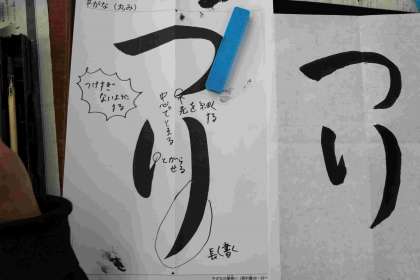 ひらがな(丸み)
つり
つけすぎ
ないように
する
中心でとめる
先を細く
する
とがらせる
長く書く
つり